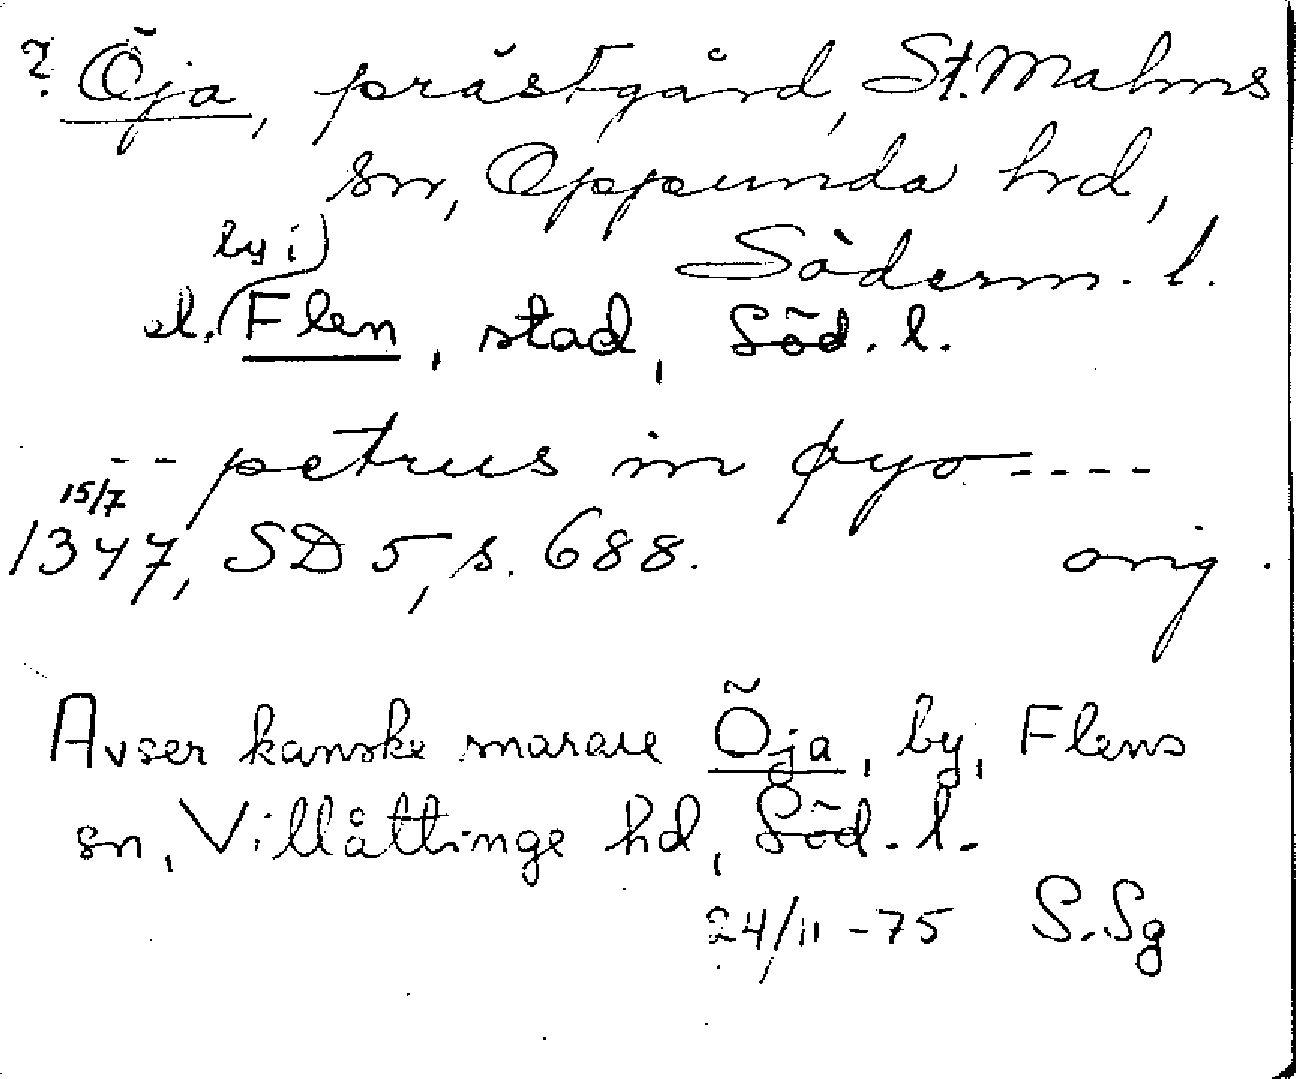 ? Öja, prästgård, St. Malms
sn, Oppunda hrd,
Söderm. l.
by i
el. Flen, stad, Söd. l.
-- petrus in øyo ----
15/7
1347, SD 5, s. 688. orig.
Avser kanske snarare Öja, by, Flens
sn, Villåttinge hd, Söd. l.
24/11 -75 S.Sg